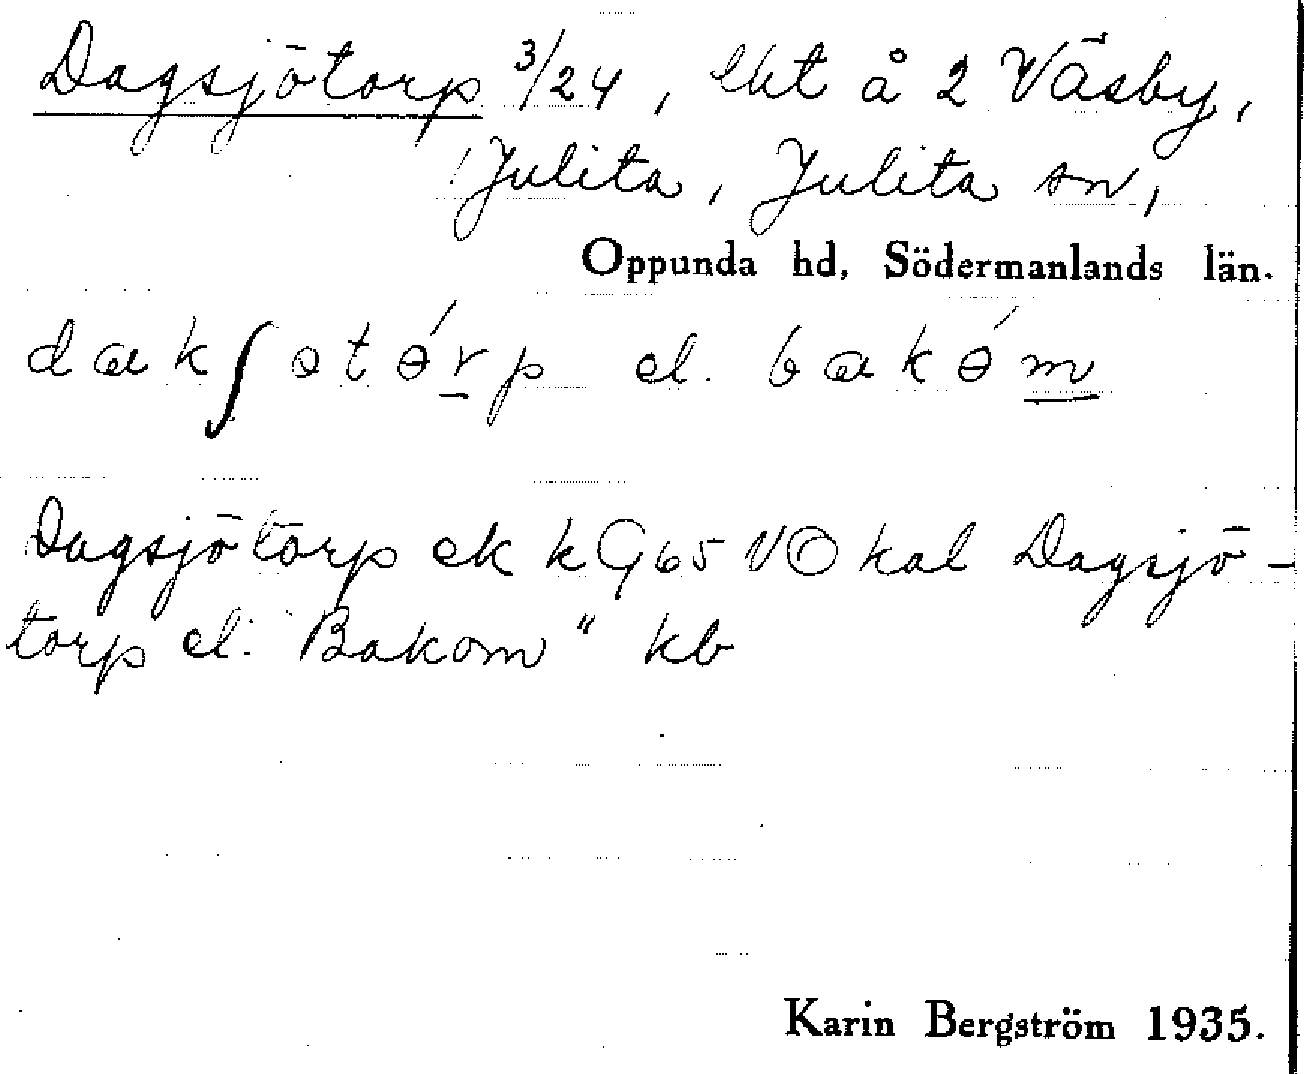 Dagsjötorp 3/24, lht å 2 Väsby,
Julita, Julita sn,
Oppunda hd, Södermanlands län.
dakʃɵtɵ́rp el. bakɵ́m
Dagsjötorp ek kG65 VO kal Dagsjö-
torp el. "Bakom" kb
Karin Bergström 1935.